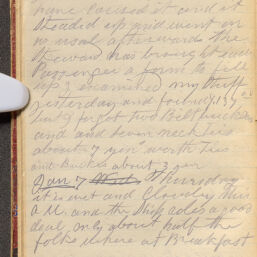 have caused it and it
headed up and went on
no meal afterwards the
steward has brought each
Passenger a form to fill
up I examined my stuff
yesterday and found
but I forgot two Belt buckles
and and seven neck ties
about 7 yen worth ties
and Buckles about 3 yen
Jan 7 Wed Thursday
it is wet and Cloudy this
A M. and the Ship rolls a good
deal only about half the
folks where at Breakfast